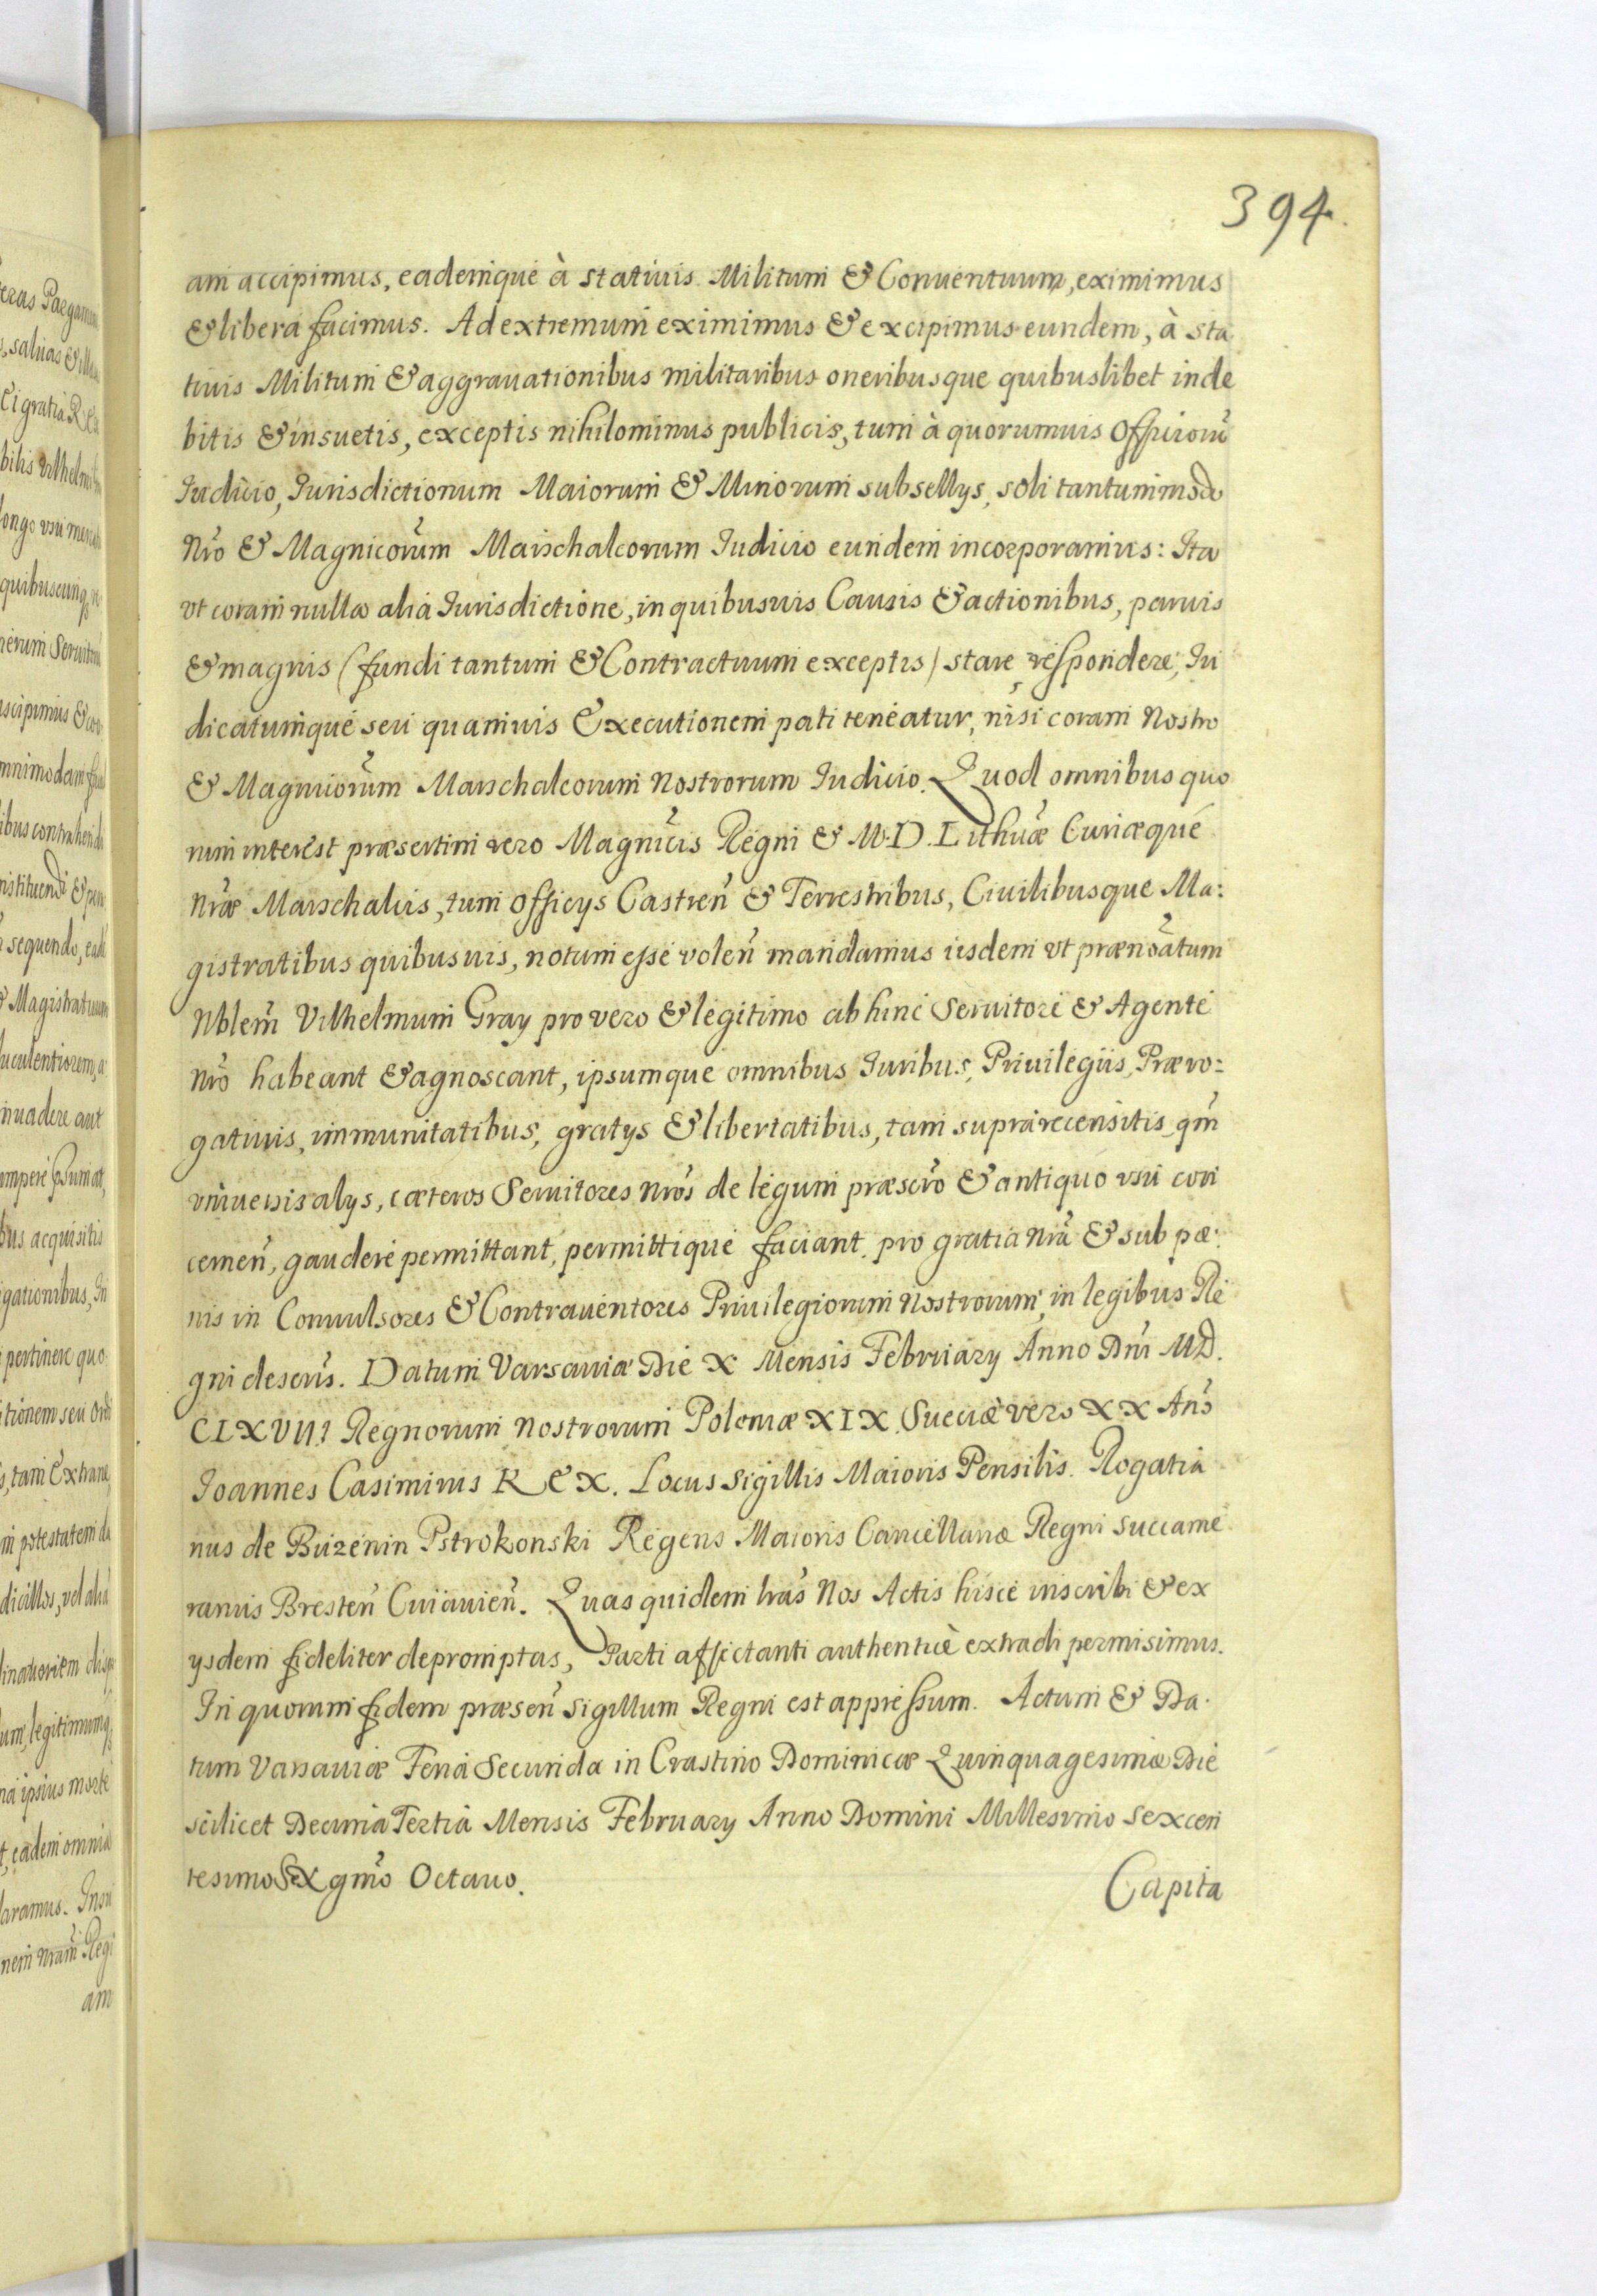 394.
am accipimus, eademque à statiuis Militum & Conuentuum, eximimus
& libera facimus. Ad extremum eximimus & excipimus eundem, à sta
tiuis Militum & aggrauationibus militaribus oneribusque quibuslibet inde
bitis & insuetis, exceptis nihilominus publicis, tum à quorumuis Officiorũ
Iudicio, Iurisdictionum Maiorum & Minorum subsellys, soli tantummodo
Nrõ & Magnicorũm Marschalcorum Iudicio eundem incorporamus: Ita
vt coram nulla alia Iurisdictione, in quibusuis Causis & actionibus, paruis
& magnis (fundi tantum & Contractuum exceptis) stare respondere, Iu
dicatumque seu quamuis Executionem pati teneatur, nisi coram Nostro
& Magnicorũm Marschalcorum Nostrorum Iudicio. Quod omnibus quo
rum interest præsertim vero Magnĩcis Regni & M. D. Lithuæ Curiæque
Nræ Marschalcis, tum Officys Castreñ & Terrestribus, Ciuilibusque Ma:
gistratibus quibusuis, notum esse voleñ mandamus iisdem vt prænoãtum
Nblem̃ Vilhelmum Gray pro vero & legitimo abhinc Seruitore & Agente
Nrõ habeant & agnoscant, ipsumque omnibus Iuribus, Priuilegiis, Præro:
gatiuis, immunitatibus, gratys & libertatibus, tam supra recensitis qm̃
vniuersis alys, cæteros Seruitores Nrõs de legum præscrõ & antiquo vsu con
cerneñ, gaudere permittant, permittique faciant. pro gratia Nrã & sub pæ:
nis in Conuulsores & Contrauentores Priuilegiorum Nostrorum, in legibus Re
gni descris̃. Datum Varsauiæ Die X Mensis February Anno Dni̇̃ MD.
CLXVIII Regnorum Nostrorum Poloniæ XIX. Sueciæ vero XX Anõ
Ioannes Casimirus REX. Locus Sigillis Maioris Pensilis. Rogatia
nus de Buzenin Pstrokonski Regens Maioris Cancellariæ Regni Succame
rarius Bresteñ Cuiauieñ. Quas quidem lras̃ Nos Actis hisce inscribi & ex
ysdem fideliter depromptas, Parti affectanti authenticè extradi permisimus.
In quorum fidem præseñ sigillum Regni est appressum. Actum & Da
tum Varsauiæ Feria Secunda in Crastino Dominicæ Quinquagesimæ Die
scilicet Decima Tertia Mensis February Anno Domini Millesimo Sexcen
tesimo Sexgmõ Octauo.
Capita